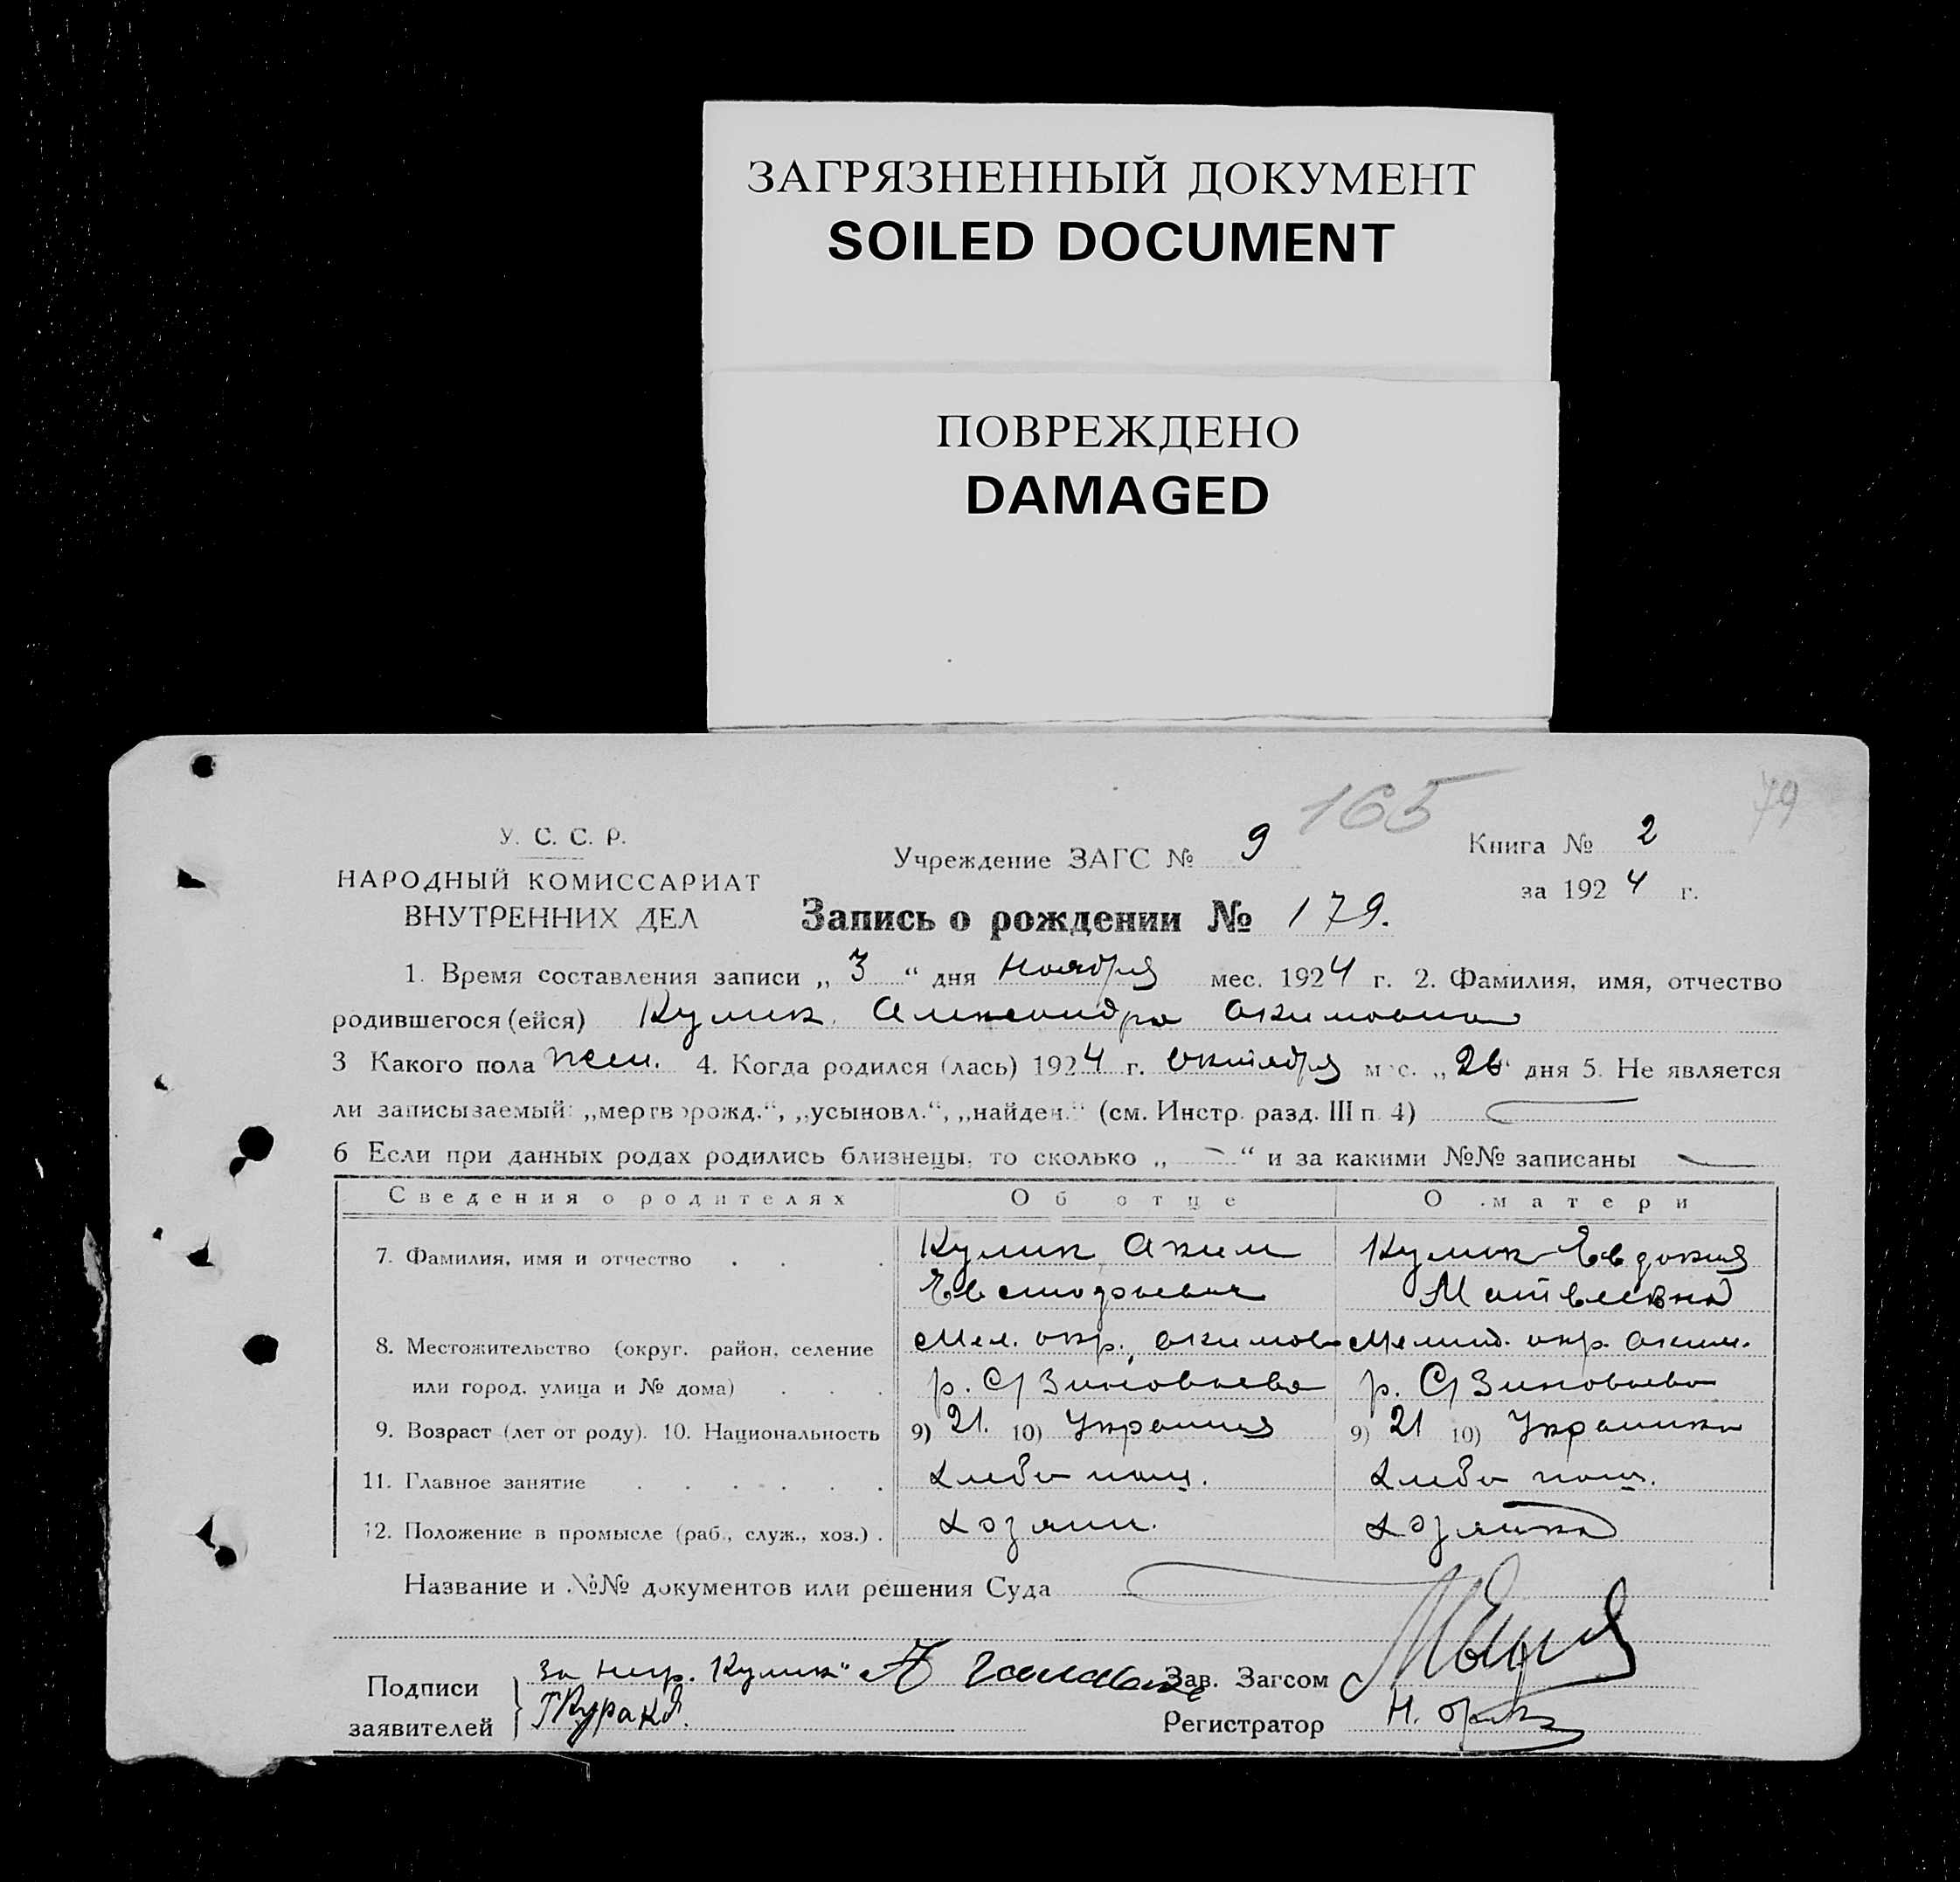 ЗАГРЯЗНЕННЫЙ ДОКУМЕНТ
SOILED DOCUMENT
ПОВРЕЖДЕНО
DAMAGED
165
79
У. С. С. Р.
НАРОДНЫЙ КОМИССАРИАТ
ВНУТРЕННИХ ДЕЛ
Учреждение ЗАГС № 9
Книга № 2
за 1924 г.
Запись о рождении № 179.
1. Время составления записи „ 3 “ дня Ноября мес. 1924 г. 2. Фамилия, имя, отчество
родившегося (ейся) Кулик Александра Акимовна
3 Какого пола жен. 4. Когда родился (лась) 1924 г. Октября мес. „26“ дня 5. Не является
ли записызаемый: „мертворожд.“, „усыновл.“, „найден.“ (см. Инстр. разд. III п. 4)
6 Если при данных родах родились близнецы, то сколько „ – “ и за какими №№ записаны —
Сведения о родителях Об отце О матери
7. Фамилия, имя и отчество . . . Кулик Аким Кулик Евдокия
Матвеевна
8. Местожительство (округ. район, селение Мел. окр., Акимов Мелит. окр. Аким.
или город, улица и № дома) . . . р. С/Зиновьева р. С/Зиновьева
9. Возраст (лет от роду). 10. Национальность 9) 21. 10) Украинец 9) 21 10) Украинка
11. Главное занятие . . . . . . Хлебо паш. Хлебо паш.
12. Положение в промысле (раб., служ., хоз.) . Хозяин. Хозяйка
Название и №№ документов или решения Суда
Подписи
заявителей
За негр. Кулик"
Зав. Загсом
Регистратор